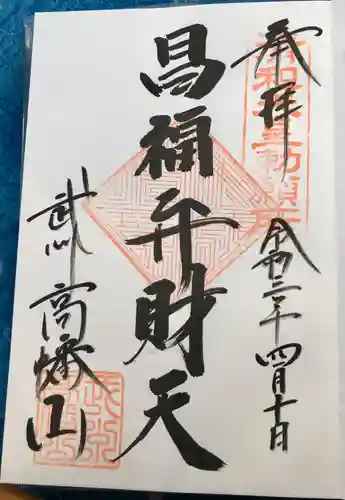 奉拝
令和二年四月十日
昌福弁財天
武州高幡山